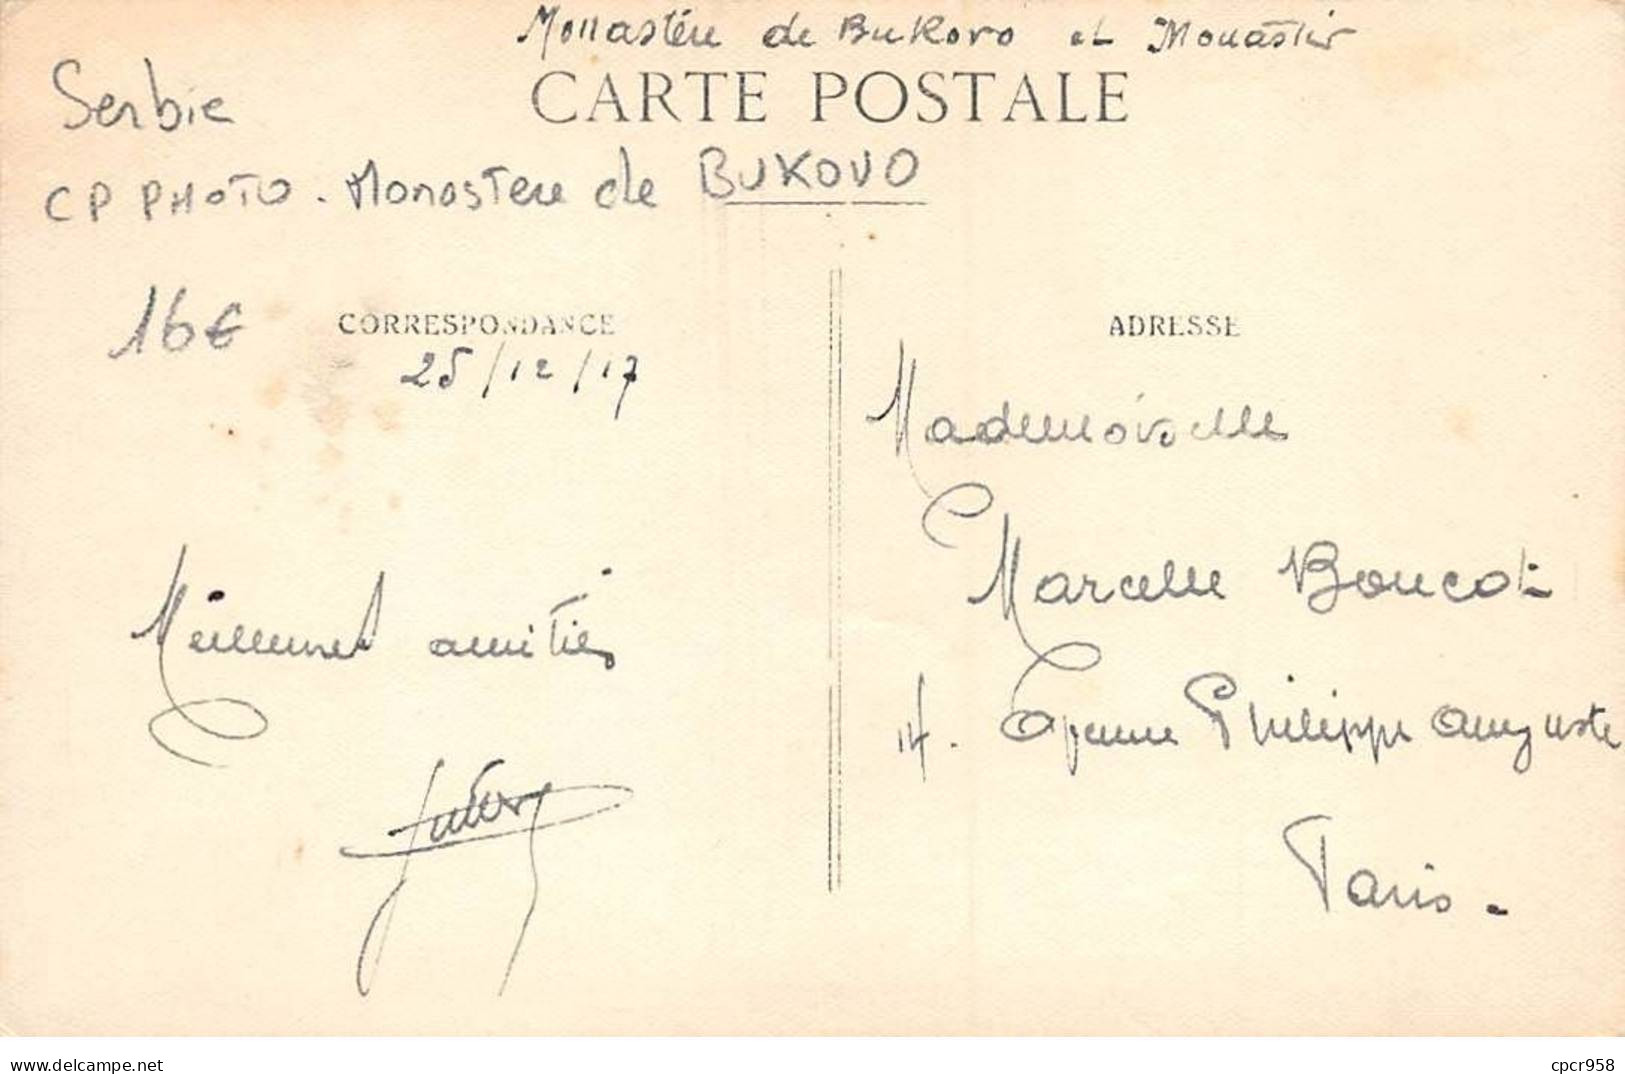 Monastère de Bukovo et Monastir
CARTE POSTALE
Serbie
CP PHOTO - Monastere de BUKOVO
16€
CORRESPONDANCE
25/12/17
ADRESSE
Mademoiselle
Marcelle Boucot
14. Avenue Philippe Auguste
Paris -
Meilleures amitiés
www.delcampe.net
cpcr958